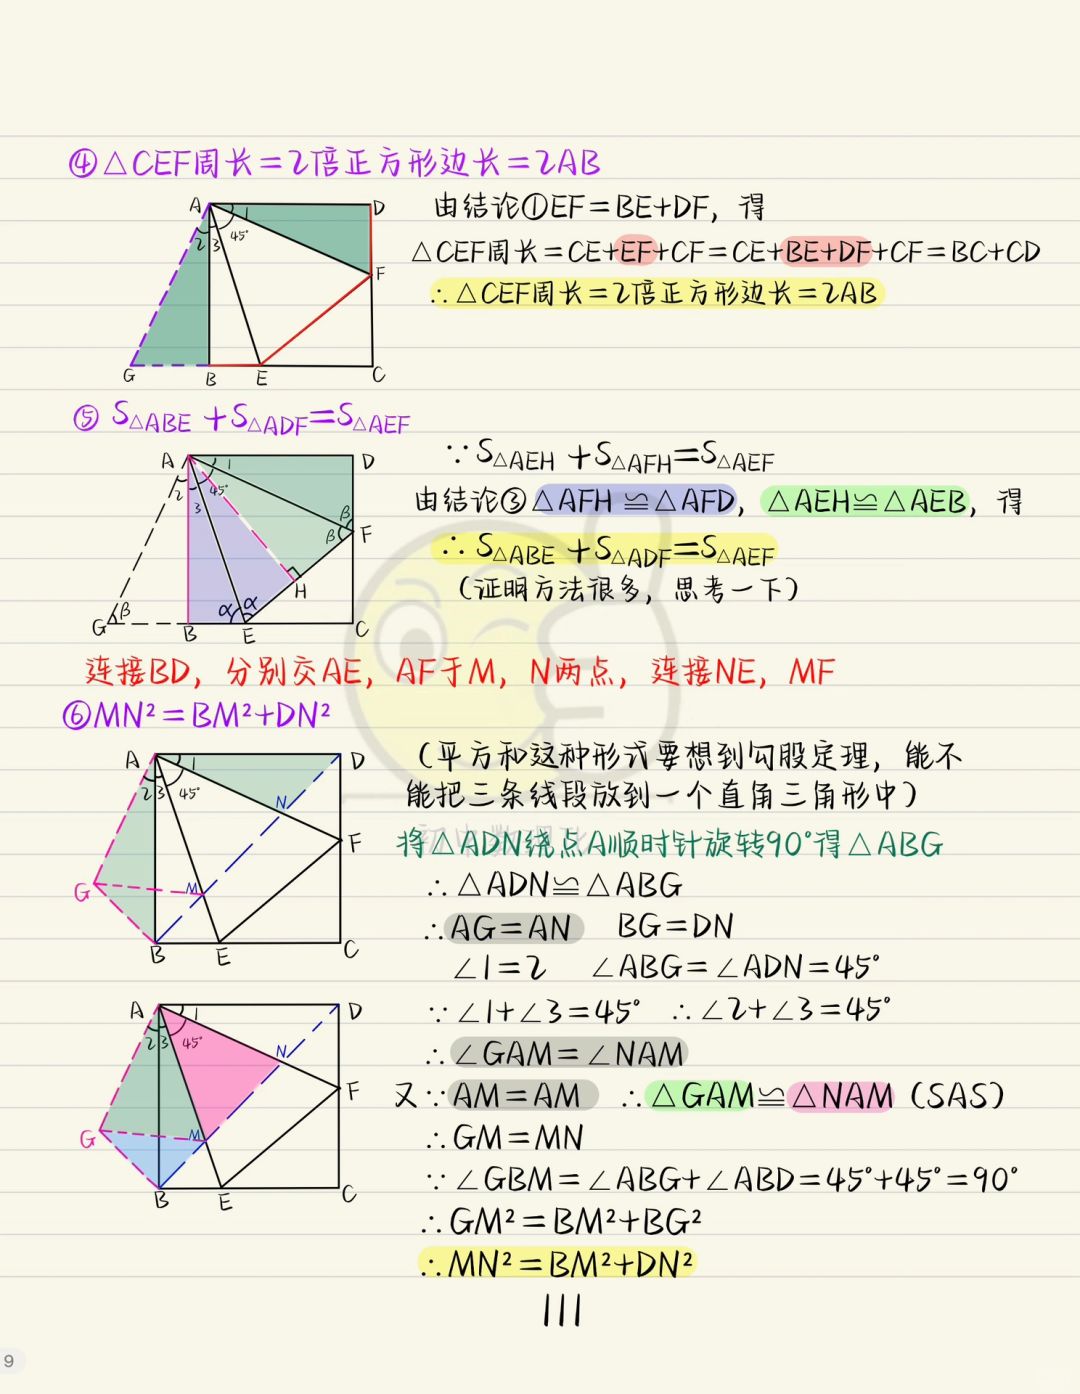 ④△CEF周长=2倍正方形边长=2AB
由结论①EF=BE+DF，得
△CEF周长=CE+EF+CF=CE+BE+DF+CF=BC+CD
∴△CEF周长=2倍正方形边长=2AB
A D 1 2 3 45° F G B E C
⑤ S△ABE+S△ADF=S△AEF
∵S△AEH+S△AFH=S△AEF
由结论③△AFH≌△AFD，△AEH≌△AEB，得
∴S△ABE+S△ADF=S△AEF
（证明方法很多，思考一下）
A D 1 2 45° 3 β F β H G β α α B E C
连接BD，分别交AE，AF于M，N两点，连接NE，MF
⑥MN²=BM²+DN²
（平方和这种形式要想到勾股定理，能不
能把三条线段放到一个直角三角形中）
将△ADN绕点A顺时针旋转90°得△ABG
∴△ADN≌△ABG
∴AG=AN BG=DN
∠1=2 ∠ABG=∠ADN=45°
A D 1 2 3 45° N F G M B E C
∵∠1+∠3=45° ∴∠2+∠3=45°
∴∠GAM=∠NAM
又∵AM=AM ∴△GAM≌△NAM（SAS）
∴GM=MN
∵∠GBM=∠ABG+∠ABD=45°+45°=90°
∴GM²=BM²+BG²
∴MN²=BM²+DN²
A D 1 2 3 45° N F G M B E C
111
9